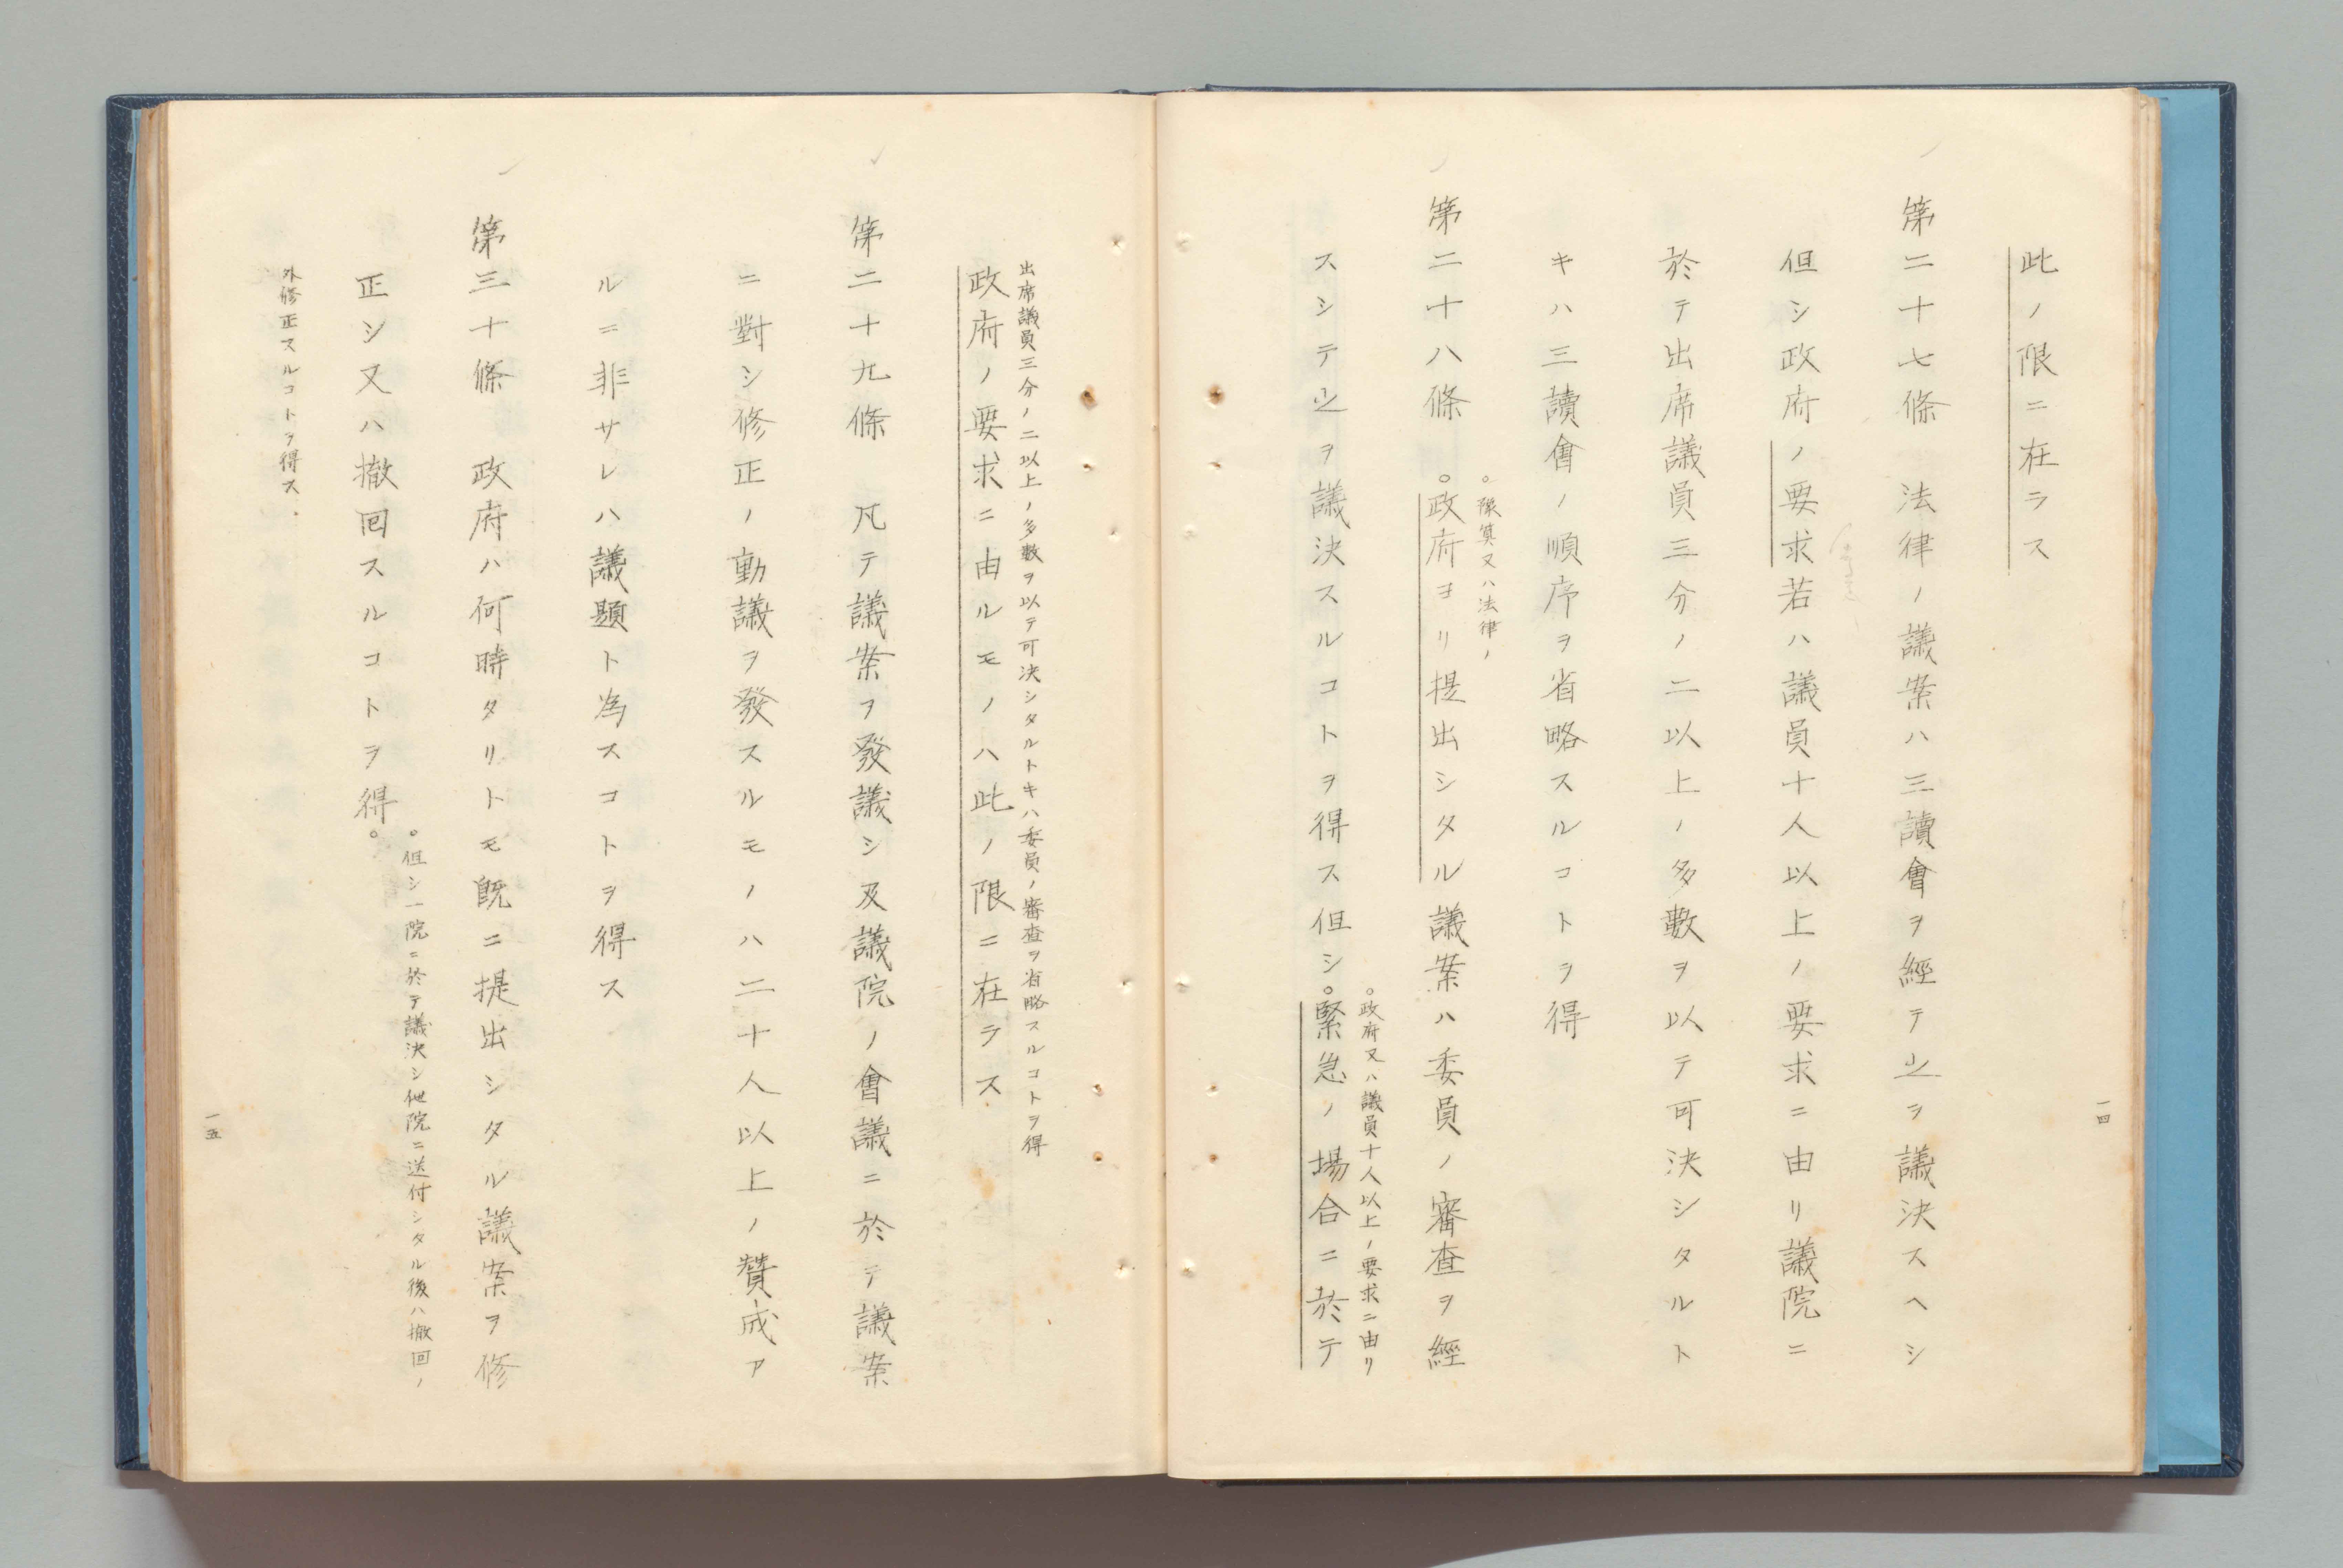 此ノ限ニ在ラス
第二十七條　法律ノ議案ハ三讀會ヲ經テ之ヲ議決スヘシ
但シ政府ノ要求若ハ議員十人以上ノ要求ニ由リ議院ニ
於テ出席議員三分ノ二以上ノ多數ヲ以テ可決シタルト
キハ三讀會ノ順序ヲ省略スルコトヲ得
。豫算又ハ法律ノ
第二十八條　。政府ヨリ提出シタル議案ハ委員ノ審査ヲ經
。政府又ハ議員十人以上ノ要求ニ由リ
スシテ之ヲ議決スルコトヲ得ス但シ。緊急ノ場合ニ於テ
一四
出席議員三分ノ二以上ノ多數ヲ以テ可決シタルトキハ委員ノ審査ヲ省略スルコトヲ得
政府ノ要求ニ由ルモノハ此ノ限ニ在ラス
第二十九條　凡テ議案ヲ發議シ及議院ノ會議ニ於テ議案
ニ對シ修正ノ動議ヲ發スルモノハ二十人以上ノ贊成ア
ルニ非サレハ議題ト為スコトヲ得ス
第三十條　政府ハ何時タリトモ既ニ提出シタル議案ヲ修
。但シ一院ニ於テ議決シ他院ニ送付シタル後ハ撤回ノ
正シ又ハ撤回スルコトヲ得。
外修正スルコトヲ得ス.
一五